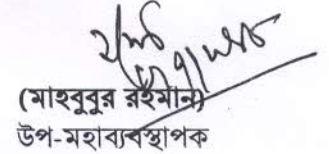 (মাহবুবুর রহমান)
উপ-মহাব্যবস্থাপক